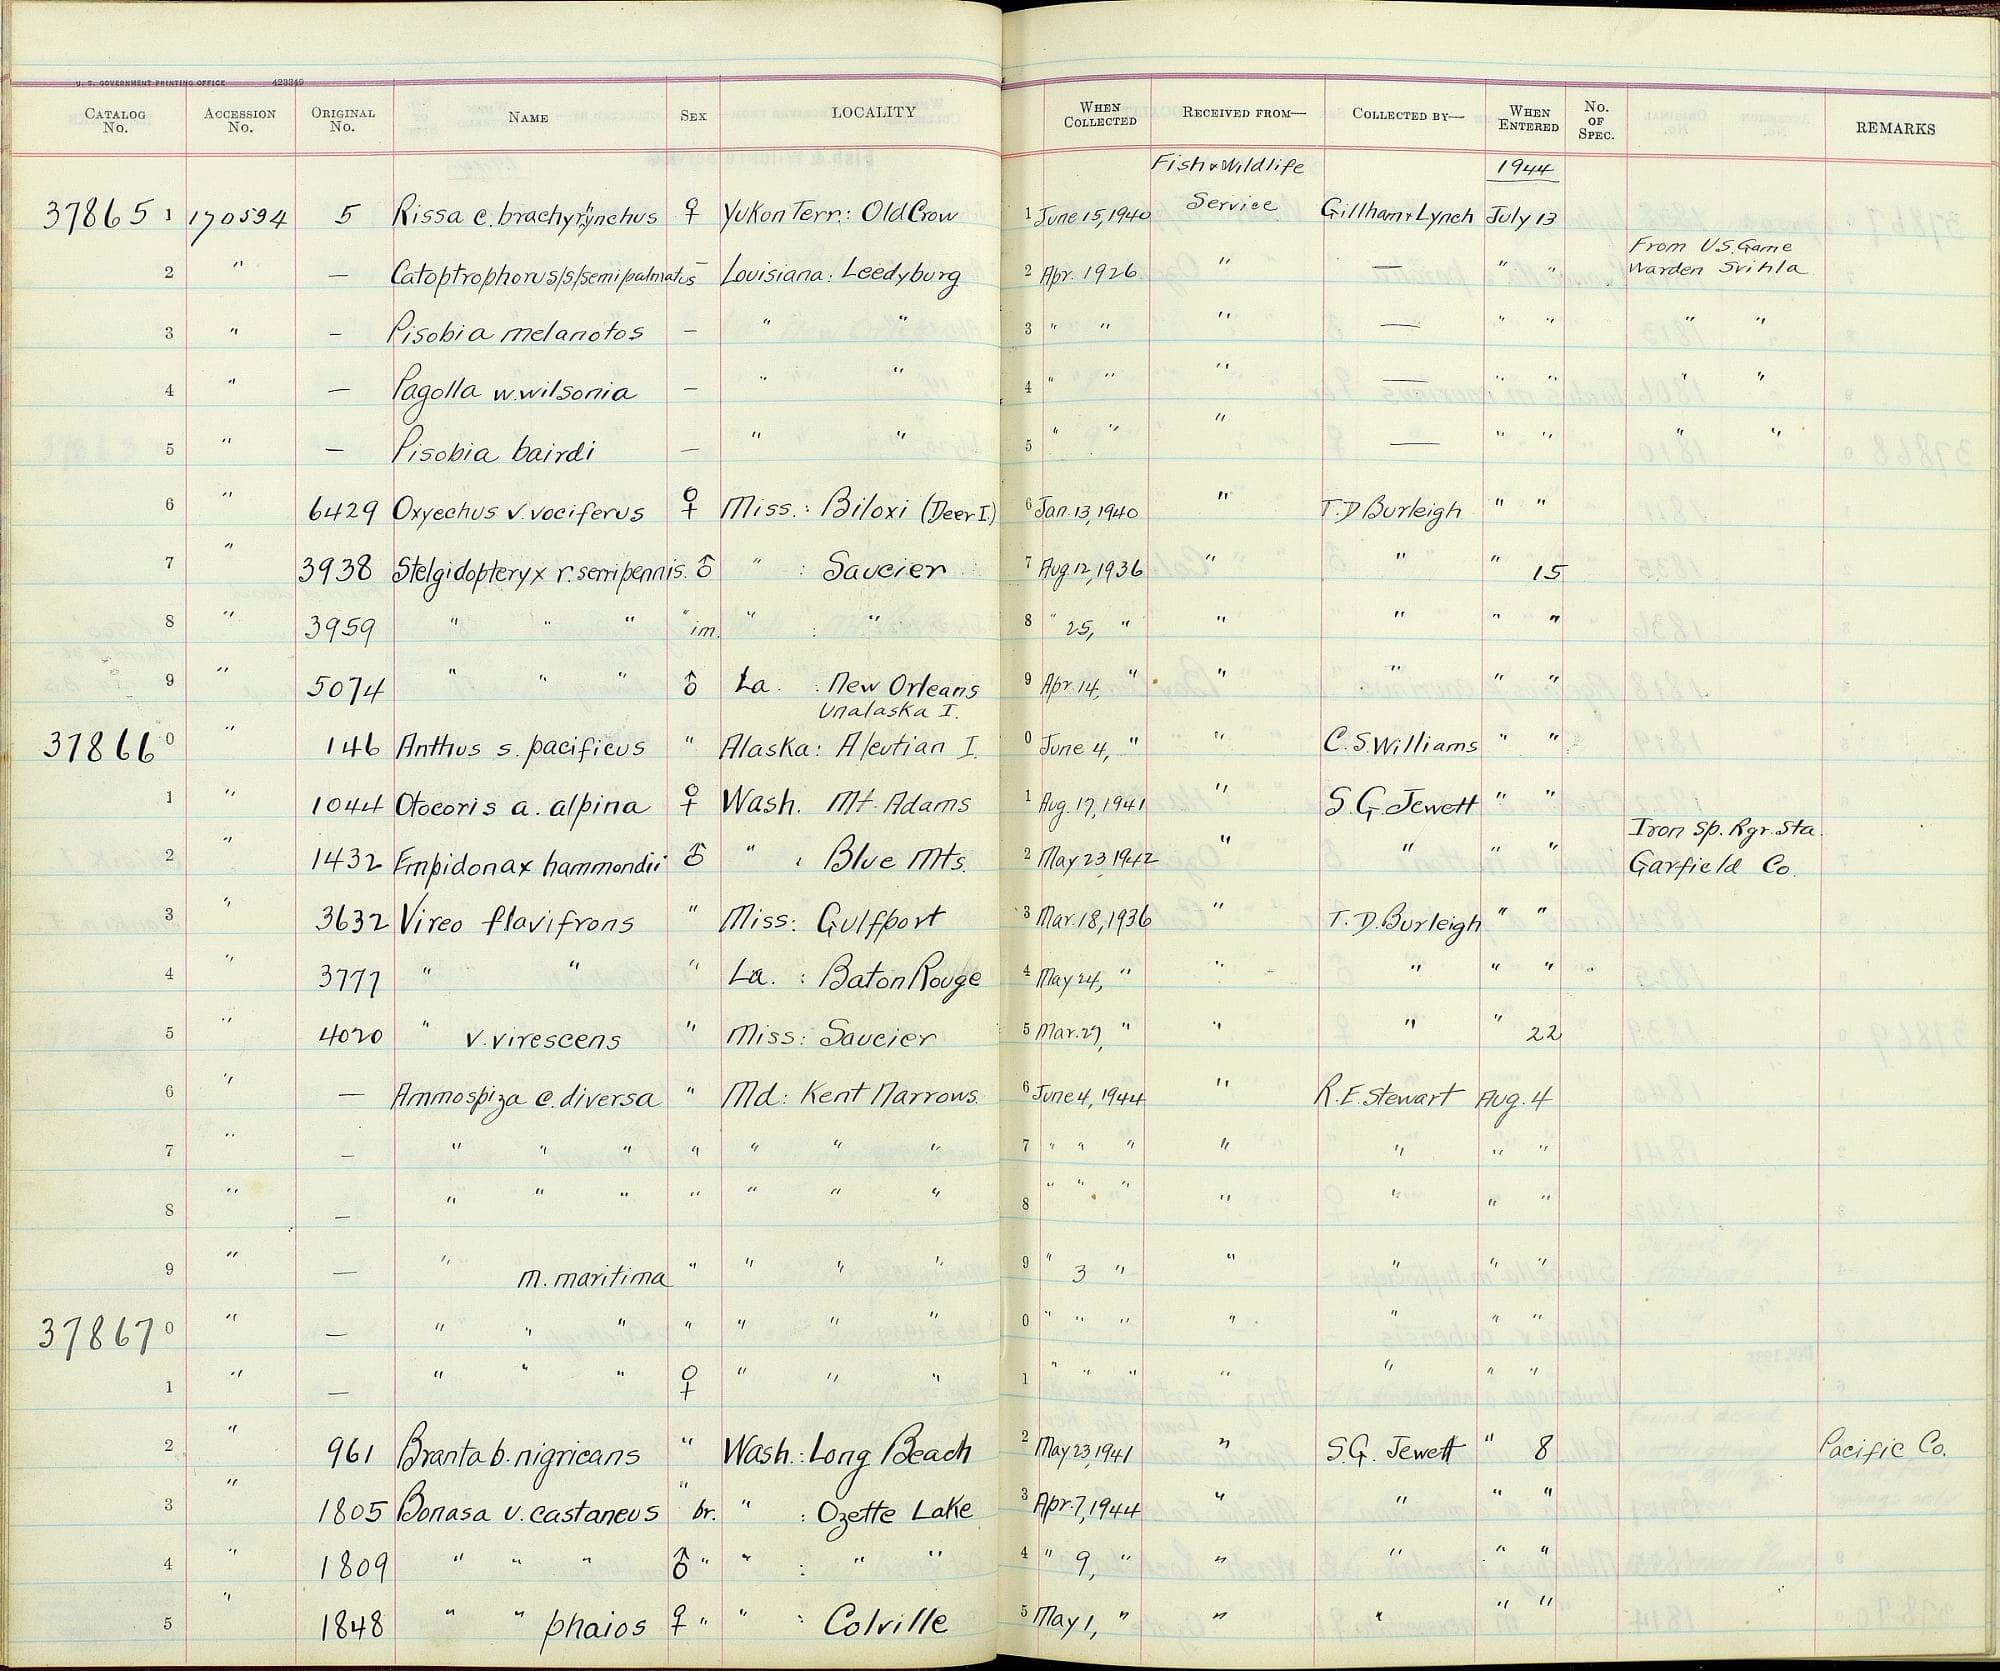 U. S. GOVERNMENT PRINTING OFFICE 423349
CATALOG No. ACCESSION No. ORIGINAL No. NAME SEX LOCALITY WHEN COLLECTED RECEIVED FROM— COLLECTED BY— WHEN ENTERED No. OF SPEC. REMARKS
Fish & Wildlife 1944
37865 1 170594 5 Rissa c. brachyrynchus ♀ Yukon Terr.: Old Crow 1 June 15, 1940 Service Gillham & Lynch July 13
From U.S. Game
2 " — Catoptrophorus/s/semipalmatus — Louisiana: Leedyburg 2 Apr. 1926 " — " " Warden Svihla
3 " — Pisobia melanotos — " " 3 " " " — " " " "
4 " — Pagolla w. wilsonia — " " 4 " " " — " " " "
5 " — Pisobia bairdi — " " 5 " " " — " " " "
6 " 6429 Oxyechus v. vociferus ♀ Miss.: Biloxi (Deer I.) 6 Jan. 13, 1940 " T. D Burleigh " "
7 " 3938 Stelgidopteryx r. serripennis. ♂ " : Saucier 7 Aug 12, 1936 " " " 15
8 " 3959 " " " " im. " : " 8 " 25, " " " " "
9 " 5074 " " " ♂ La. : New Orleans 9 Apr. 14, " " " " "
Unalaska I.
37866 0 " 146 Anthus s. pacificus " Alaska: Aleutian I. 0 June 4, " " C. S. Williams " "
1 " 1044 Otocoris a. alpina ♀ Wash. Mt. Adams 1 Aug. 17, 1941 " S. G. Jewett " "
Iron Sp. Rgr. Sta.
2 " 1432 Empidonax hammondii ♂ " : Blue Mts. 2 May 23, 1942 " " " " Garfield Co.
3 " 3632 Vireo flavifrons " Miss: Gulfport 3 Mar. 18, 1936 " T. D. Burleigh " "
4 " 3777 " " " La. : Baton Rouge 4 May 24, " " " " "
5 " 4020 " v. virescens " Miss: Saucier 5 Mar. 27, " " " " 22
6 " — Ammospiza c. diversa " Md: Kent Narrows 6 June 4, 1944 " R. E. Stewart Aug. 4
7 " — " " " " " " " 7 " " " " " " "
8 " — " " " " " " " 8 " " " " " " "
9 " — " m. maritima " " " " 9 " 3 " " " " "
37867 0 " — " " " " " " " 0 " " " " " " "
1 " — " " " ♀ " " " 1 " " " " " " "
2 " 961 Branta b. nigricans " Wash.: Long Beach 2 May 23, 1941 " S. G. Jewett " 8 Pacific Co.
3 " 1805 Bonasa u. castaneus " br. " : Ozette Lake 3 Apr. 7, 1944 " " " "
4 " 1809 " " " ♂ " " : " " 4 " 9, " " " " "
5 " 1848 " " phaios ♀ " " : Colville 5 May 1, " " " " "